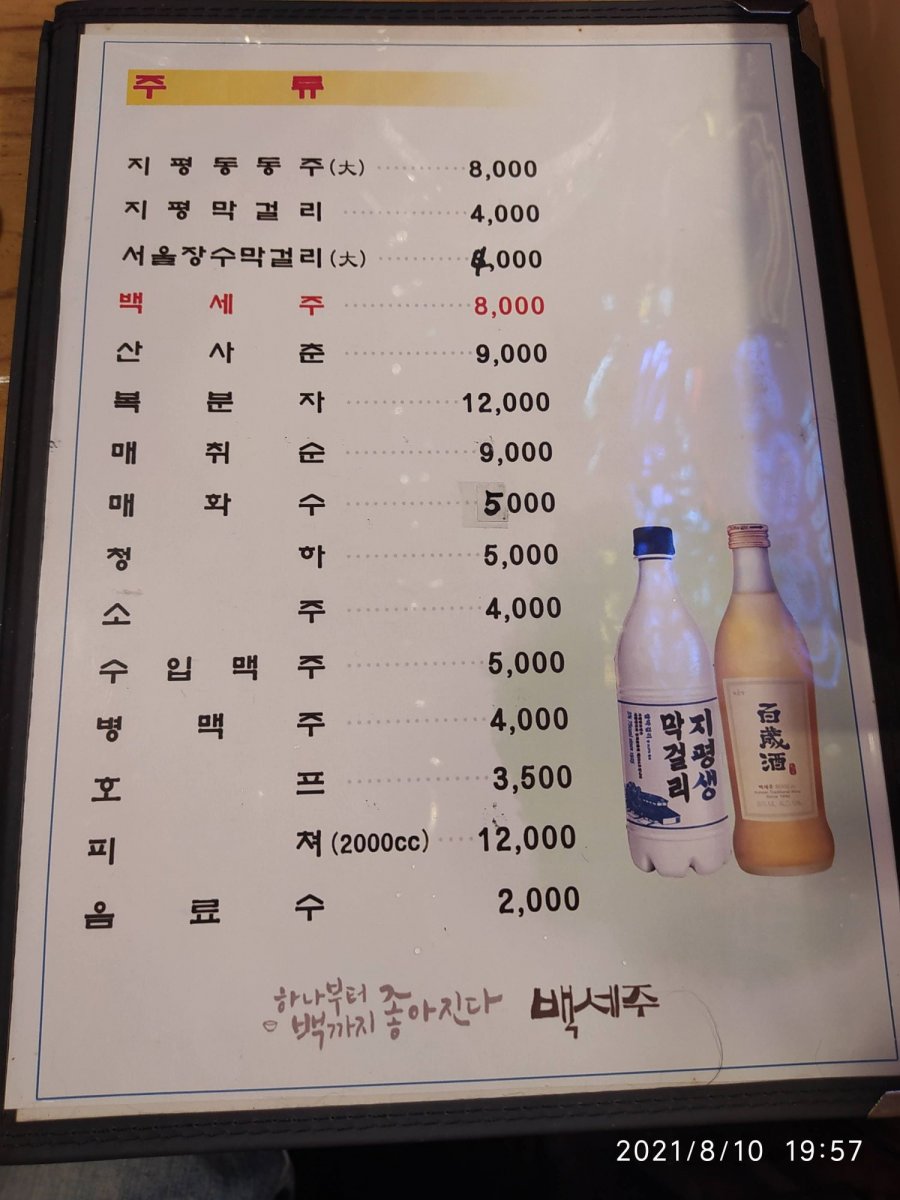 주 류
지평동동주(大) 8,000
지평막걸리 4,000
서울장수막걸리(大) 4,000
백세주 8,000
산사춘 9,000
복분자 12,000
매취순 9,000
매화수 5000
청하 5,000
소주 4,000
수입맥주 5,000
병맥주 4,000
호프 3,500
피쳐(2000cc) 12,000
음료수 2,000
지평생
막걸리
百歲酒
백세주
하나부터
백까지 좋아진다 백세주
2021/8/10 19:57